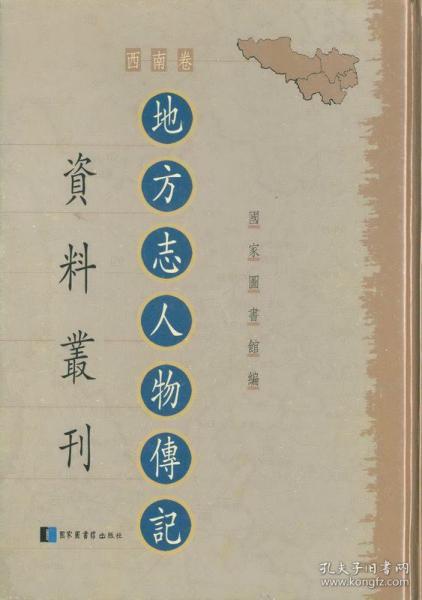 西南卷
地方志人物傳記
資料叢刊
國家圖書館編
國家圖書館出版社
孔夫子旧书网
www.kongfz.com